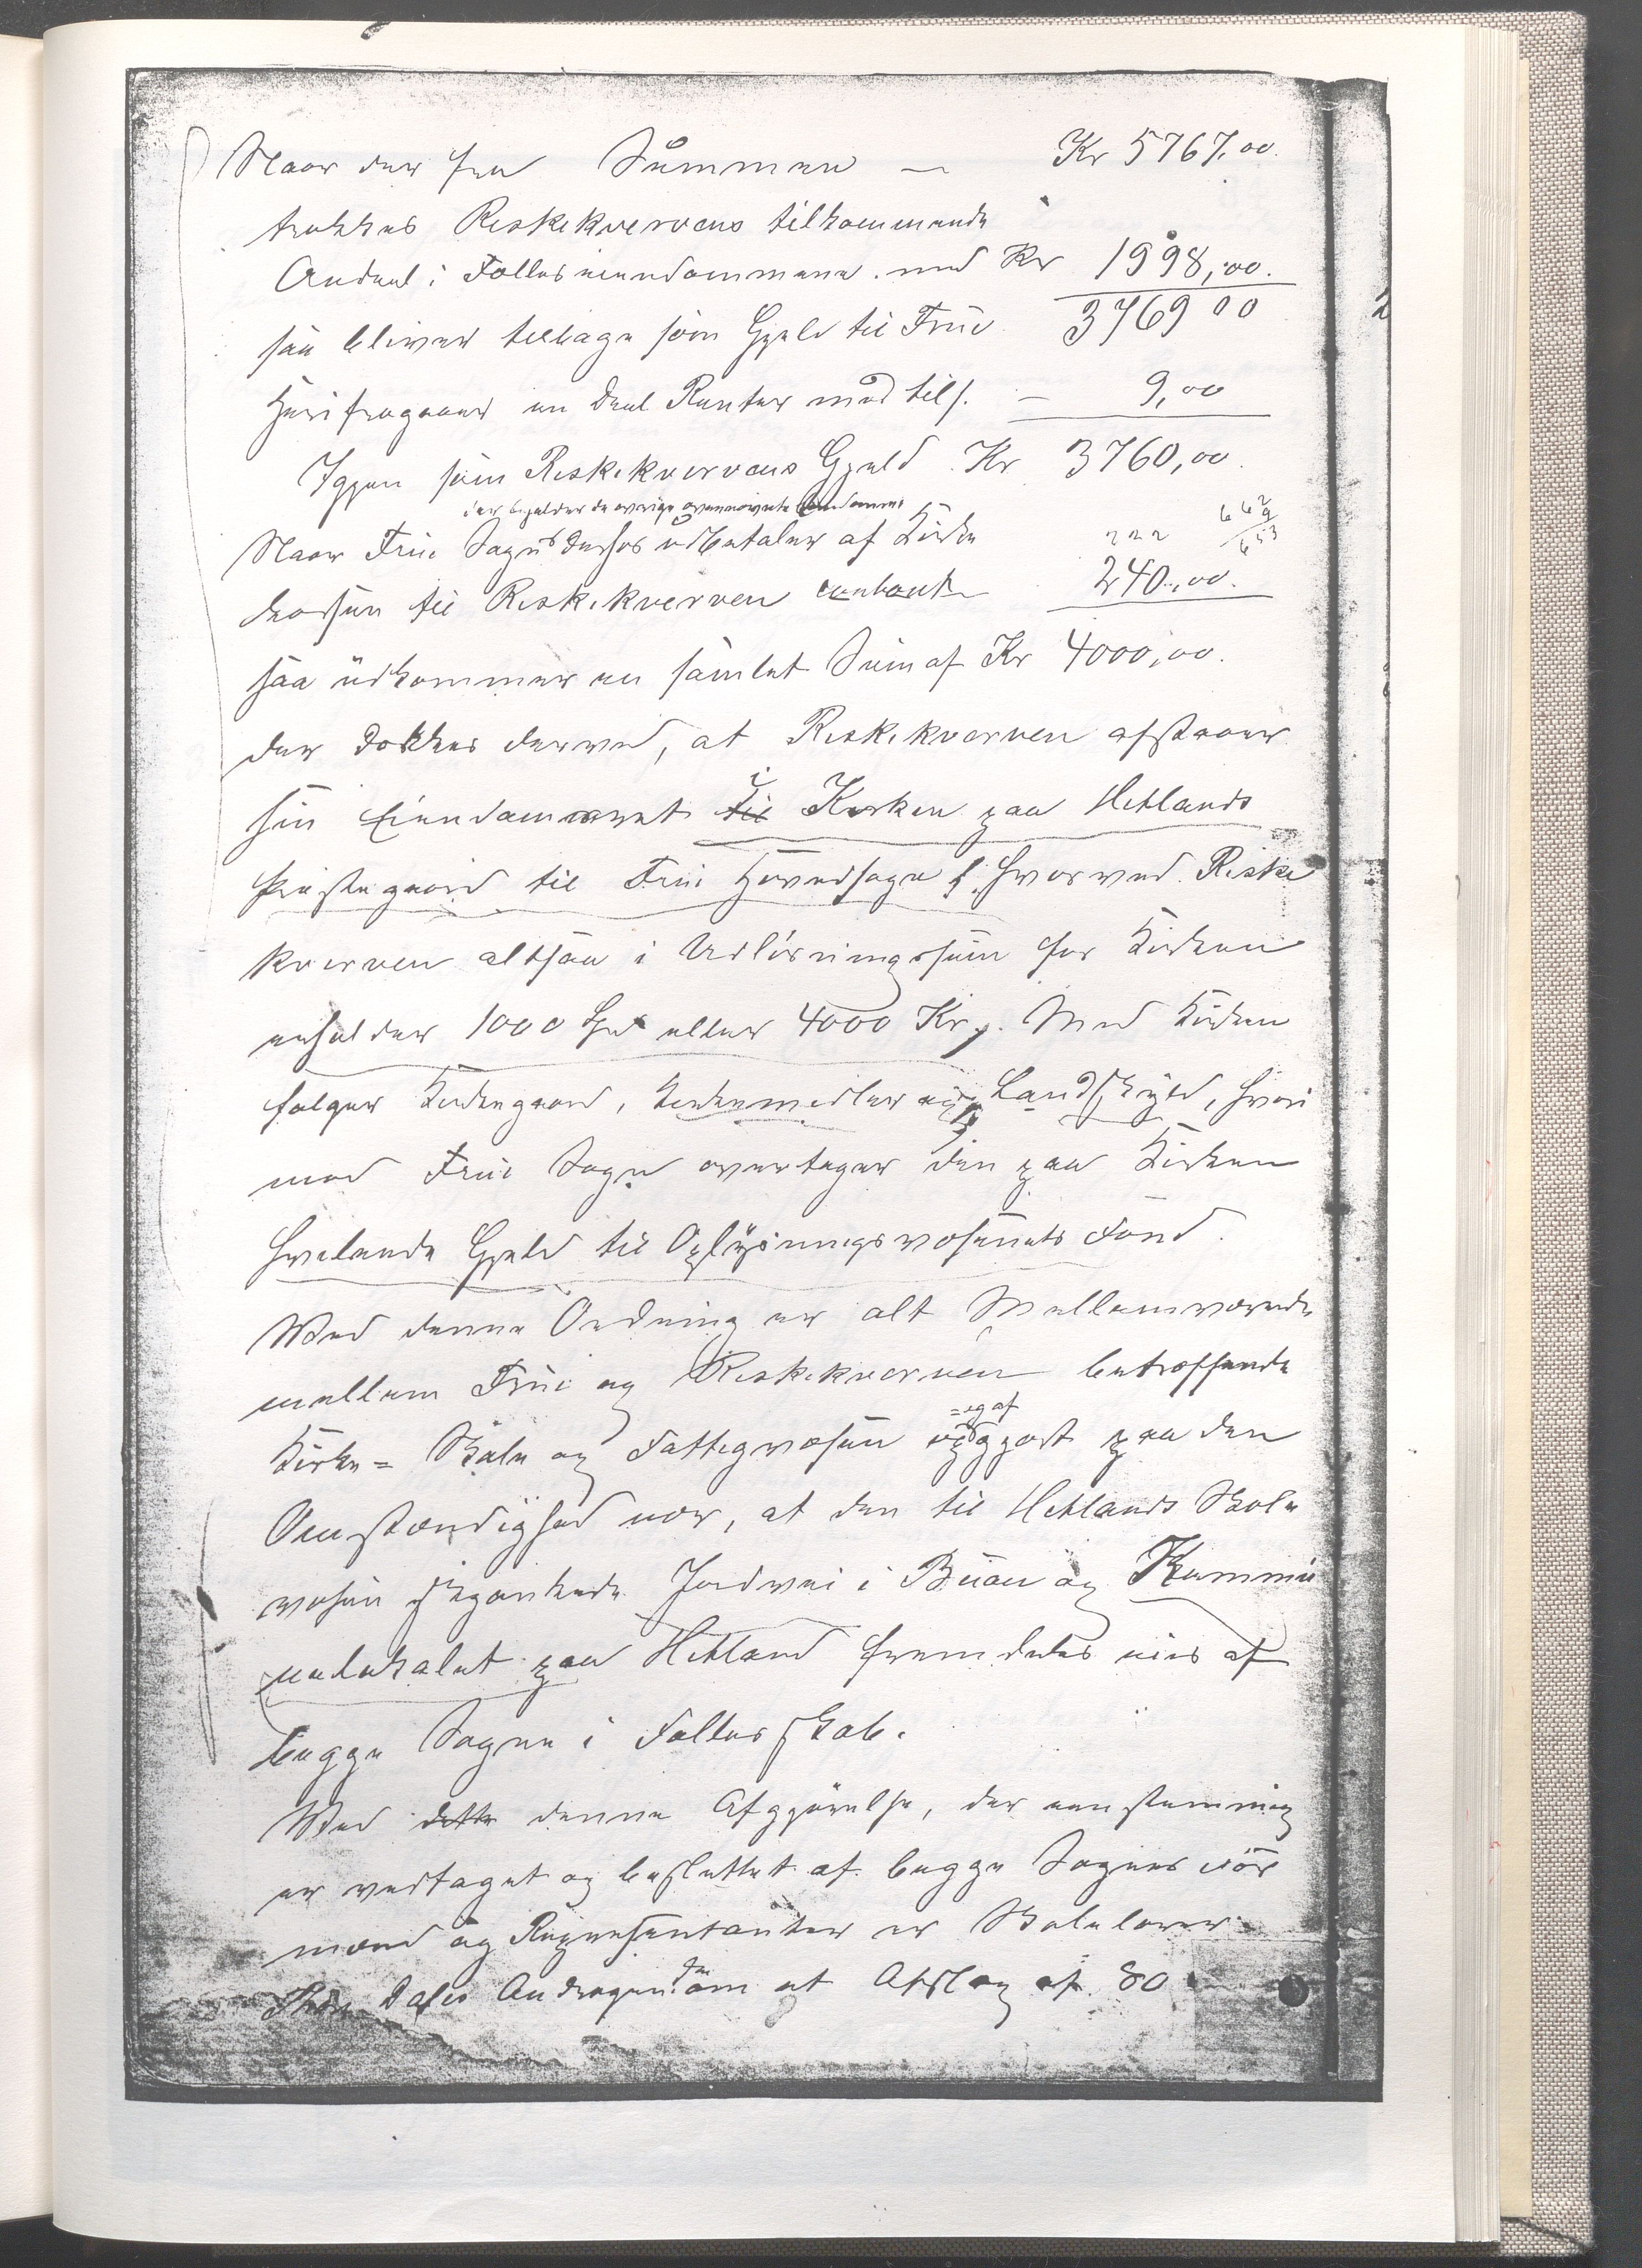 Naar der fra Summen — Kr 5767,00.
trækkes Riskekvervens tilkommende
Andeel i Fælleseiendommene med Kr 1998,00.
saa bliver tilbage som Gjæld til Frue 3769 00
Herifragaaer en Deel Renter med tils. — 9,00
Igjen som Riskekvervens Gjæld Kr 3760,00.
der beholder de øvrige ovennævnte Eiendomme
Naar Frue Sogn desfor udbetaler af Kirke 222 662
9
653
kassen til Riskekverven contant 240,00.
saa udkommer en samlet Sum af Kr 4000,00.
der dækkes derved, at Riskekverven afstaaer
sin Eiendomsret til i Kirken paa Hetlands
Præstegaard til Frue Hovedsogn, hvorved Riske
kverven altsaa i Udløsningssum for Kirken
erholder 1000 Spd eller 4000 Kr. Med Kirken
følger Kirkegaard, Kirkemidler og Landskyld, hvori
mod Frue Sogn overtager den paa Kirken
hvilende Gjæld til Oplysningsvæsenets Fond.
Med denne Ordning er alt Mellemværende
mellem Frue og Riskekverven betræffende
=og af
Kirke= Skole og Fattigvæsen opgjort paa den
Omstændighed nær, at den til Hetlands Skole
væsen skjænkede Jordvei i Buøen og Kommu
nelokalet paa Hetland fremdeles eies af
begge Sogne i Fællesskab.
Med dette denne Afgjørelse, der eenstemmig
er vedtaget og besluttet af begge Sognes For
mænd og Repræsentanter er Skolelærer
Dales Andragende om et Afslag af 80